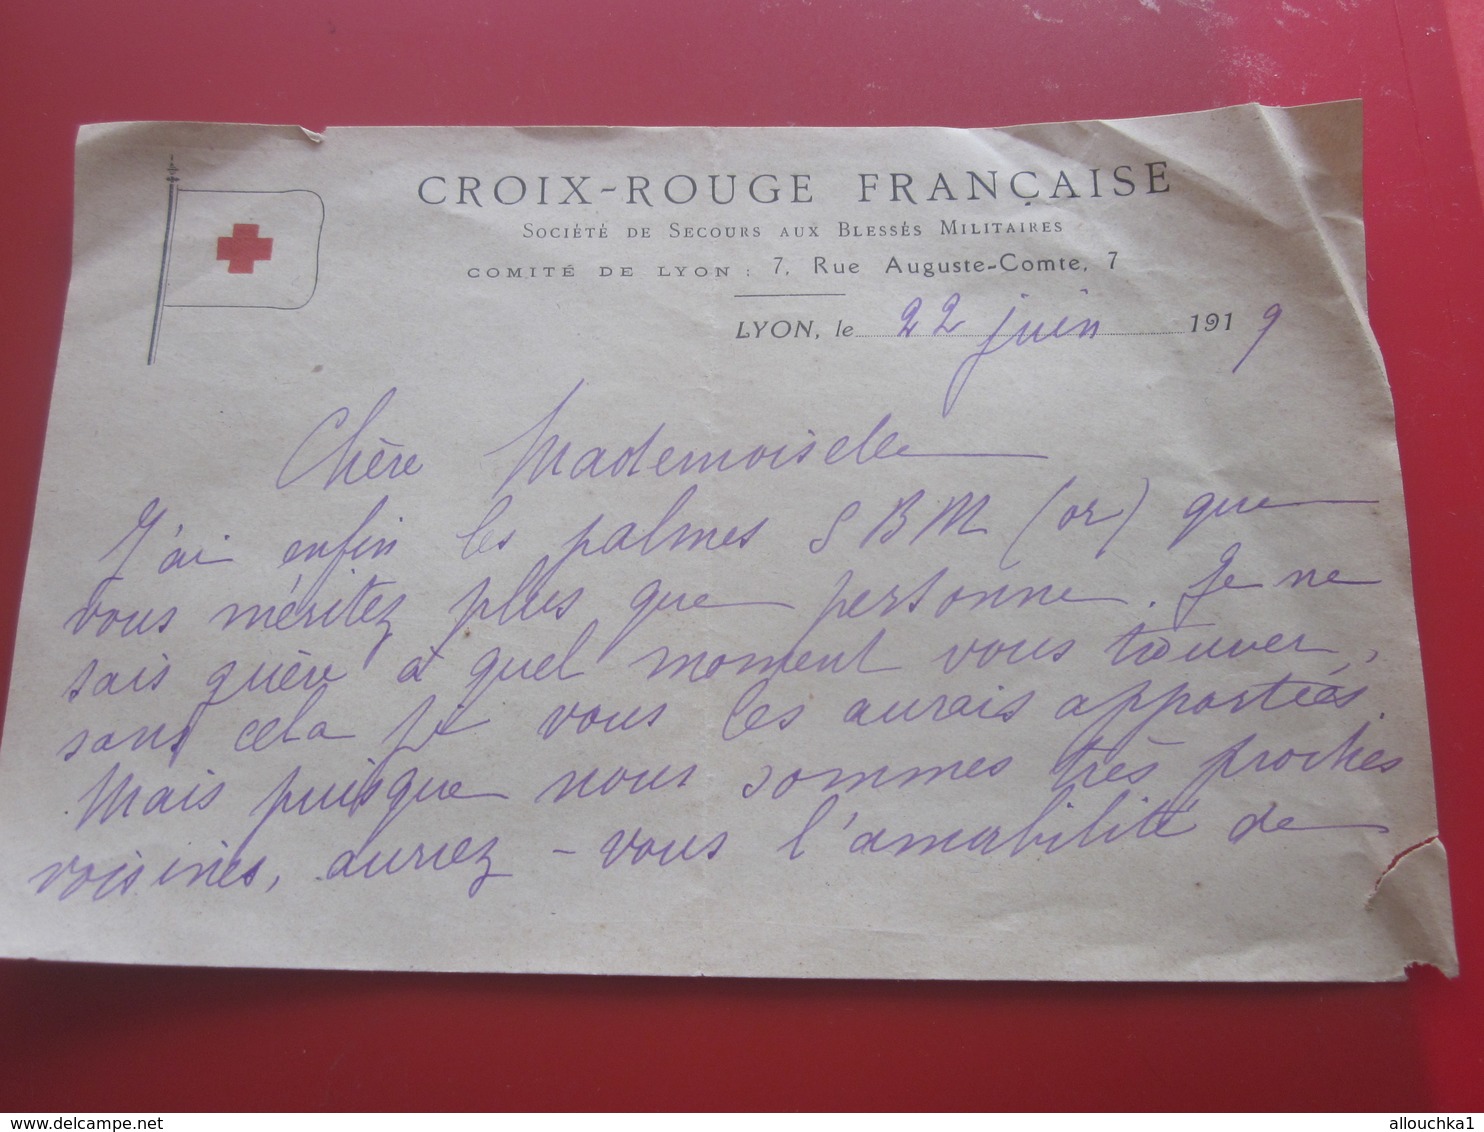 CROIX-ROUGE FRANÇAISE
SOCIÉTÉ DE SECOURS AUX BLESSÉS MILITAIRES
COMITÉ DE LYON : 7, Rue Auguste-Comte, 7
LYON, le 22 juin 1919
Chère Mademoiselle
J'ai enfin les palmes SBM (or) que
vous méritez plus que personne. Je ne
sais guère à quel moment vous trouver,
sans cela je vous les aurais apportées.
Mais puisque nous sommes très proches
voisines, auriez-vous l'amabilité de
www.delcampe.net
allouchka1